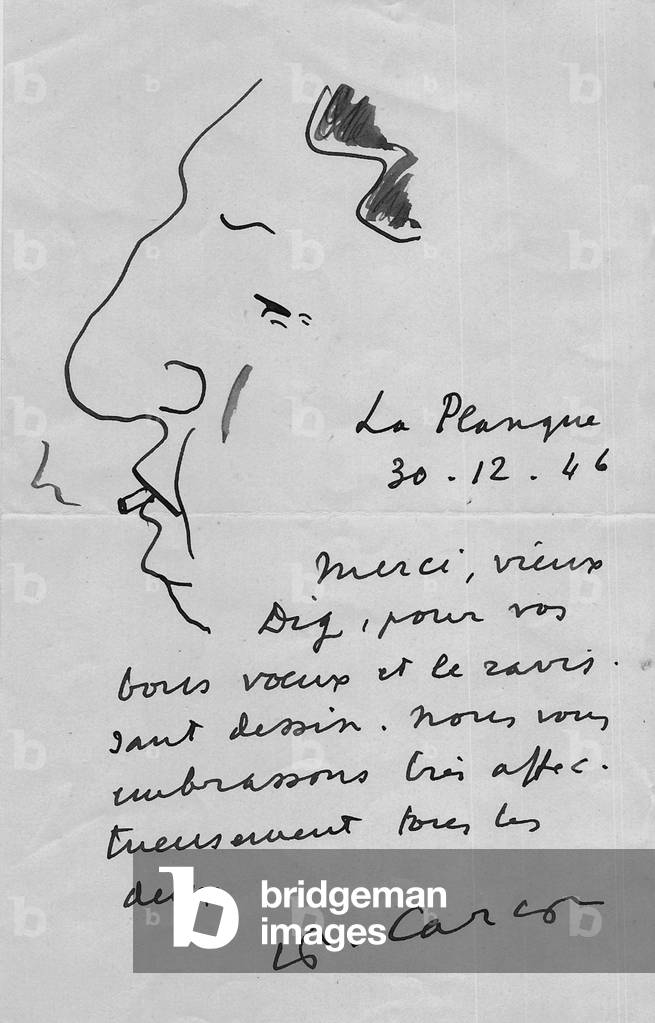 La Planque
30.12.46
Merci, vieux
Dig, pour vos
bons vœux et le ravis.
sant dessin. Nous vous
embrassons très affec.
tueusement tous les
deux
bridgeman
images
Carco